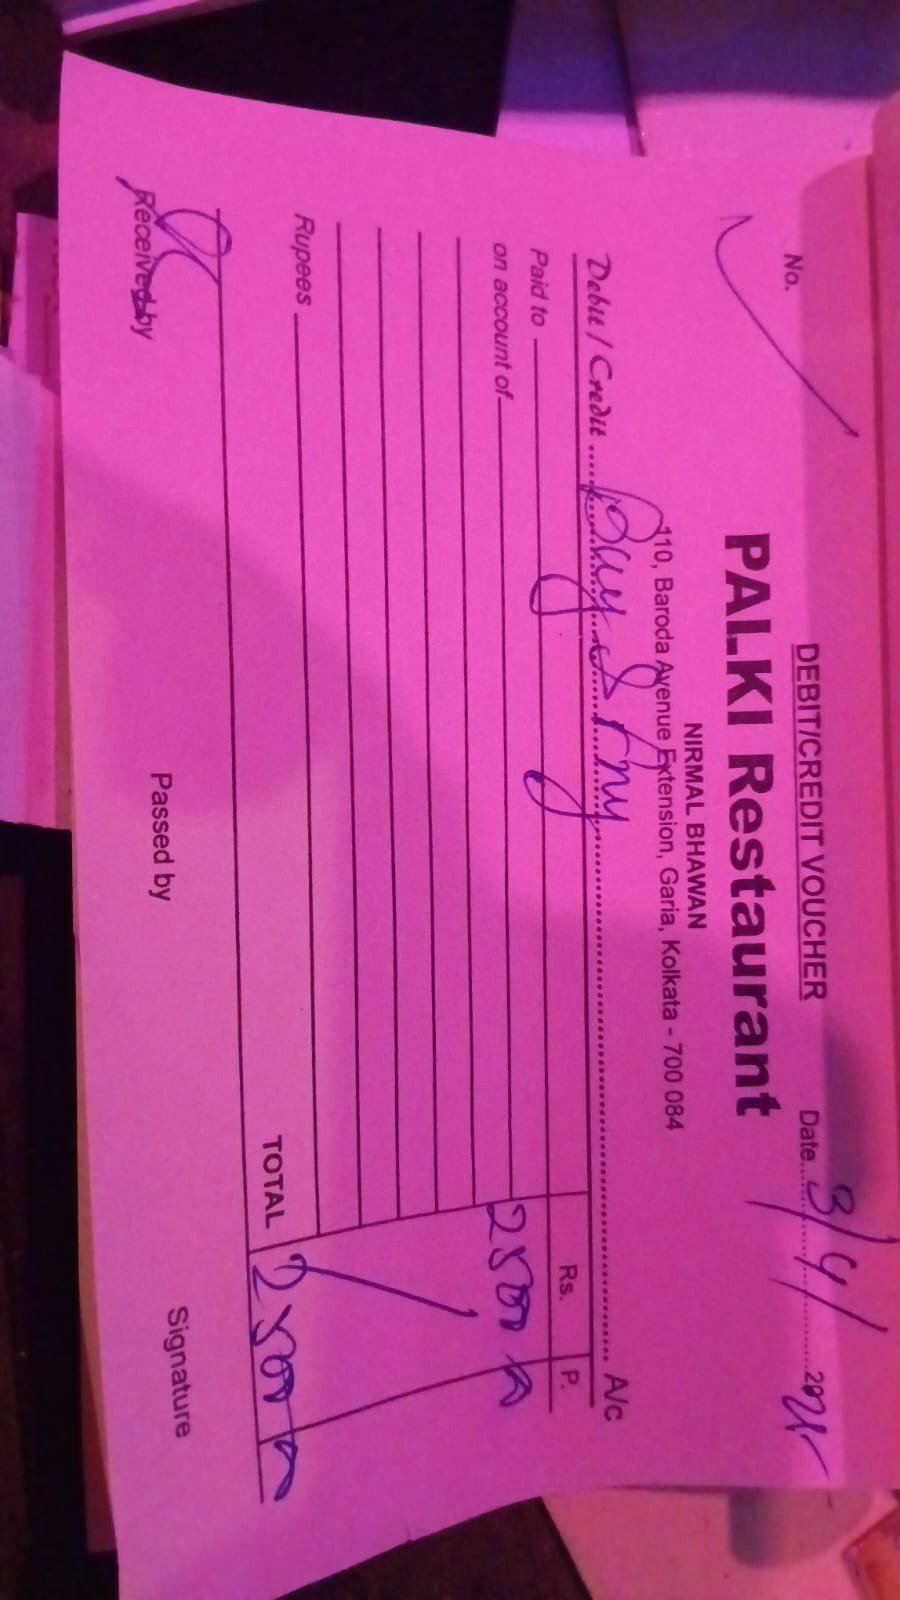 DEBIT/CREDIT VOUCHER
No. Date 3/4/2025
PALKI Restaurant
NIRMAL BHAWAN
110, Baroda Avenue Extension, Garia, Kolkata - 700 084
Debit / Credit ........ A/c
Paid to Rs. P.
on account of 2500
Rupees
TOTAL 2500
Received by Passed by Signature